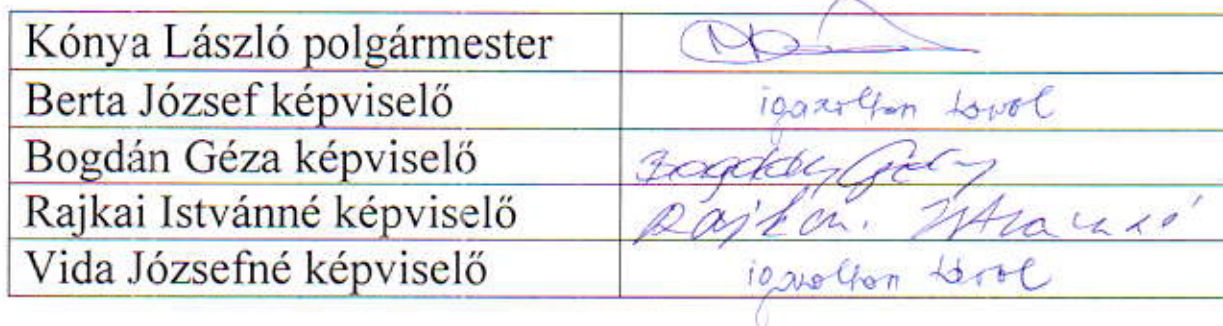 Kónya László polgármester
Berta József képviselő igazoltan távol
Bogdán Géza képviselő Bogdán Géza
Rajkai Istvánné képviselő Rajkai Istvánné
Vida Józsefné képviselő igazoltan távol